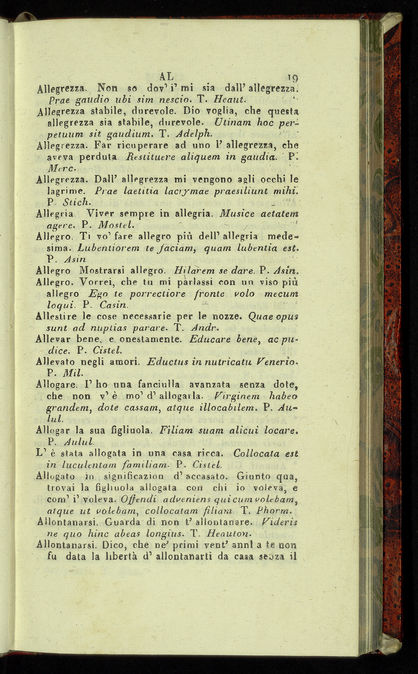 AL 19
Allegrezza. Non so dov' i' mi sia dall' allegrezza.
Prae gaudio ubi sim nescio. T. Heaut.
Allegrezza stabile, durevole. Dio voglia, che questa
allegrezza sia stabile, durevole. Utinam hoc per-
petuum sit gaudium. T. Adelph.
Allegrezza. Far ricuperare ad uno l' allegrezza, che
aveva perduta Restituere aliquem in gaudia. P.
Merc.
Allegrezza. Dall' allegrezza mi vengono agli occhi le
lagrime. Prae laetitia lacrymae praesiliunt mihi.
P. Stich.
Allegria. Viver sempre in allegria. Musice aetatem
agere. P. Mostel.
Allegro. Ti vo' fare allegro più dell' allegria mede-
sima. Lubentiorem te faciam, quam lubentia est.
P. Asin
Allegro Mostrarsi allegro. Hilarem se dare. P. Asin.
Allegro. Vorrei, che tu mi parlassi con un viso più
allegro Ego te porrectiore fronte volo mecum
loqui. P. Casin.
Allestire le cose necessarie per le nozze. Quae opus
sunt ad nuptias parare. T. Andr.
Allevar bene, e onestamente. Educare bene, ac pu-
dice. P. Cistel.
Allevato negli amori. Eductus in nutricatu Venerio.
P. Mil.
Allogare. I' ho una fanciulla avanzata senza dote,
che non v' è mo' d' allogarla. Virginem habeo
grandem, dote cassam, atque illocabilem. P. Au-
lul.
Allogar la sua figliuola. Filiam suam alicui locare.
P. Aulul.
L' è stata allogata in una casa ricca. Collocata est
in luculentam familiam. P. Cistel.
Allogato in significazion d' accasato. Giunto qua,
trovai la figliuola allogata con chi io voleva, e
com' i' voleva. Offendi adveniens quicum volebam,
atque ut volebam, collocatam filiam. T. Phorm.
Allontanarsi. Guarda di non t' allontanare. Videris
ne quo hinc abeas longius. T. Heauton.
Allontanarsi. Dico, che ne' primi vent' anni a te non
fu data la libertà d' allontanarti da casa senza il